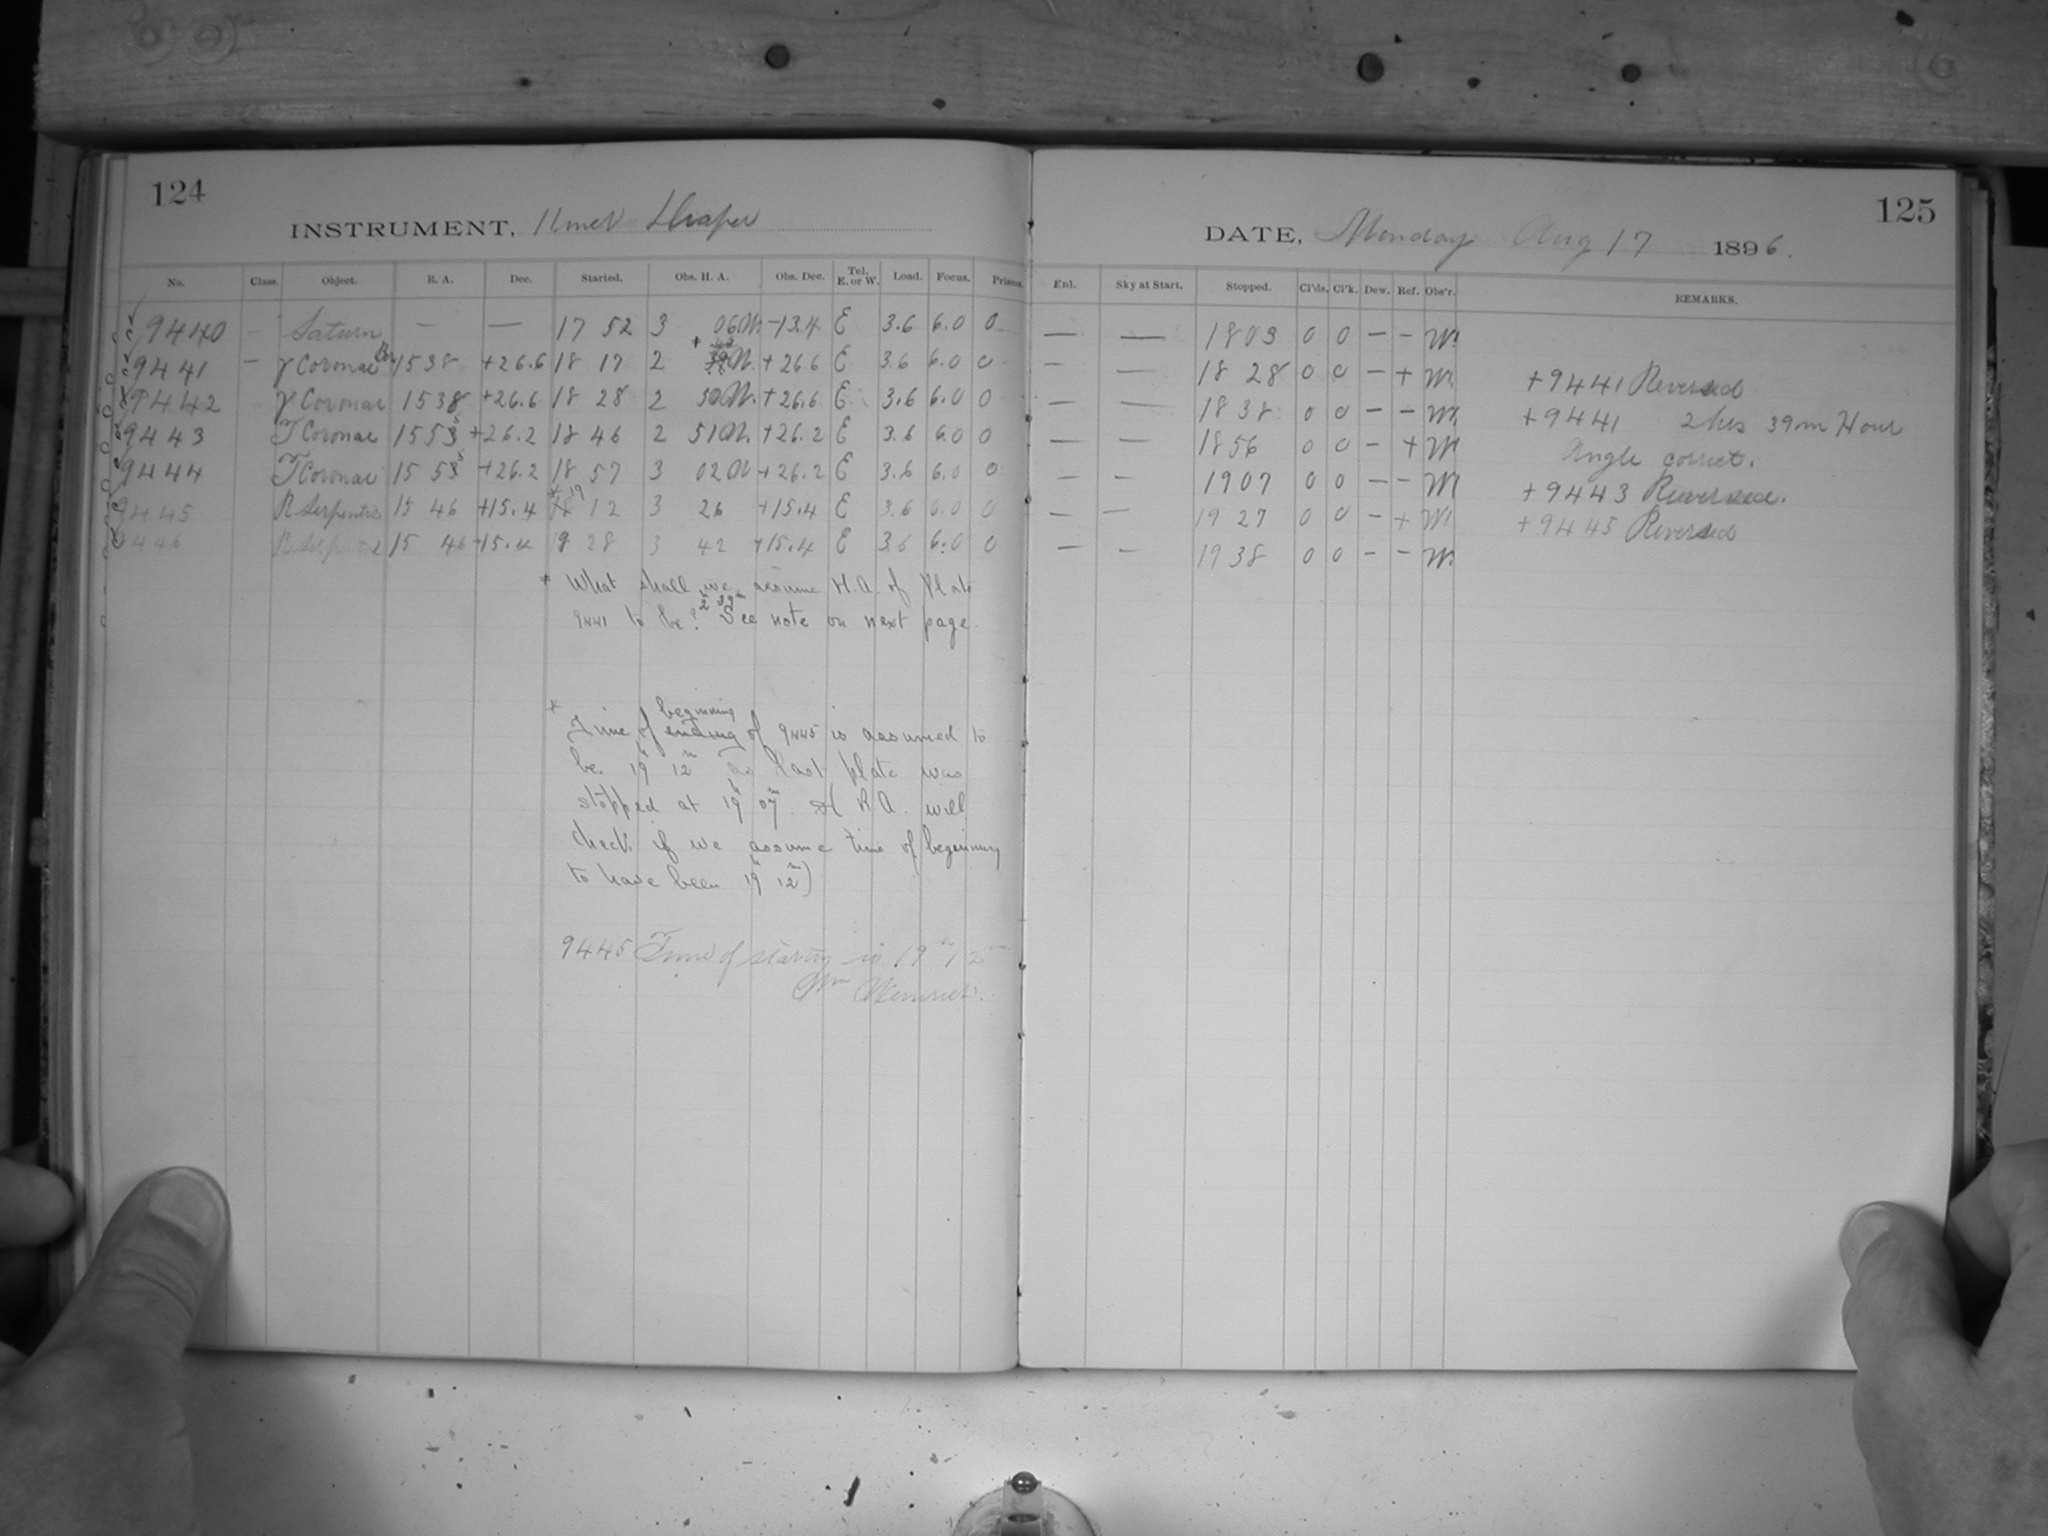 124
INSTRUMENT, 11 inch Draper
No. Class. Object. R. A. Dec. Started. Obs. H. A. Obs. Dec. Tel. E. or W. Load. Focus. Prisms.
9440 — Saturn — — 17 52 3 06 W. -13.4 E 3.6 6.0 0
9441 — γ Coronae Bor 15 38 +26.6 18 17 2 W. +26.6 E 3.6 6.0 0
9442 γ Coronae 15 38 +26.6 18 28 2 50 W. +26.6 E 3.6 6.0 0
9443 T Coronae 15 55 +26.2 18 46 2 51 W. +26.2 E 3.6 6.0 0
9444 T Coronae 15 55 +26.2 18 57 3 02 W +26.2 E 3.6 6.0 0
9445 R Serpentis 15 46 +15.4 * 19 12 3 26 +15.4 E 3.6 6.0 0
9446 R Serpentis 15 46 +15.4 19 28 3 42 +15.4 E 3.6 6.0 0
* What shall we assume H.A. of Plate
9441 to be? 2h 39m See note on next page.
* Time of beginning ending of 9445 is assumed to
be 19h 12m as last plate was
stopped at 19h 07m. R.A. will
check if we assume time of beginning
to have been 19h 12m)
9445 Time of starting is 19h 12m
Wm
125
DATE, Monday Aug 17 1896.
Enl. Sky at Start. Stopped. Cl'ds. Cl'k. Dew. Ref. Obs'r. REMARKS.
— — 18 03 0 0 — — W.
— — 18 28 0 0 — + W. +9441 Reversed
— — 18 38 0 0 — — W. +9441 2 hrs 39m Hour
— — 18 56 0 0 — + W Angle correct.
— — 19 07 0 0 — — W +9443 Reversed.
— — 19 27 0 0 — + W +9445 Reversed
— — 19 38 0 0 — — W.